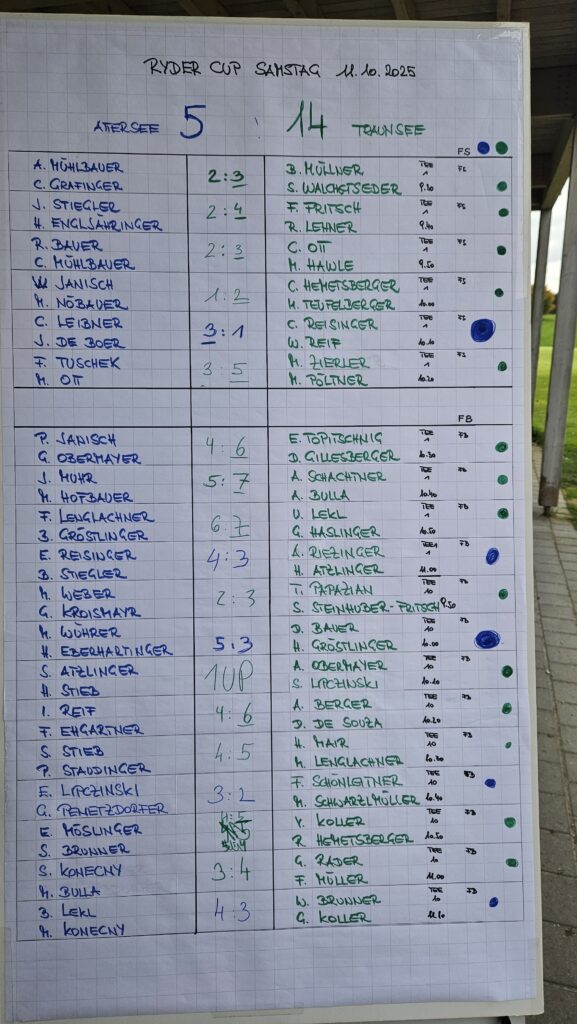 RYDER CUP SAMSTAG 11.10.2025
ATERSEE 5 : 14 TRAUNSEE
FS
A. MÜHLBAUER 2:3 B. MÜLLNER TEE 1 FS
C. GRAFINGER S. WALCHETSEDER 9.30
J. STIEGLER 2:4 F. FRITSCH TEE 1 FS
H. ENGLJÄHRINGER R. LEHNER 9.40
R. BAUER 2:3 C. OTT TEE 1 FS
C. MÜHLBAUER M. HAWLE 9.50
W. JANISCH 1:2 C. HEMETSBERGER TEE 1 FS
M. NÖBAUER M. TEUFELBERGER 10.00
C. LEIBNER 3:1 C. REISINGER TEE 1 FS
J. DE BOER W. REIF 10.10
F. TUSCHEK 3:5 M. ZIERLER TEE 1 FS
M. OTT M. PÖLTNER 10.20
FB
P. JANISCH 4:6 E. TOPITSCHNIG TEE 1 FB
G. OBERMAYER D. GILLESBERGER 10.30
J. MUHR 5:7 A. SCHACHTNER TEE 1 FB
M. HOFBAUER A. BULLA 10.40
F. LENGLACHNER 6:7 U. LEKL TEE 1 FB
B. GRÖSTLINGER G. HASLINGER 10.50
E. REISINGER 4:3 A. RIEZINGER TEE 1 FB
B. STIEGLER H. ATZLINGER 11.00
M. WEBER 2:3 T. PAPAZIAN TEE 10 FB
G. KROISMAYR S. STEINHUBER-FRITSCH 9.50
M. WÜHRER 5:3 D. BAUER TEE 10 FB
H. EBERHARTINGER H. GRÖSTLINGER 10.00
S. ATZLINGER 1UP A. OBERMAYER TEE 10 FB
H. STIEB S. LIPCZINSKI 10.10
I. REIF 4:6 A. BERGER TEE 10 FB
F. EHGARTNER D. DE SOUZA 10.20
S. STIEB 4:5 H. MAIR TEE 10 FB
P. STAUDINGER M. LENGLACHNER 10.30
E. LIPCZINSKI 3:2 F. SCHÖNLEITNER TEE 10 FB
G. PENETZDORFER M. SCHWARZLMÜLLER 10.40
E. MÖSLINGER Y. KOLLER TEE 10 FB
S. BRUNNER R. HEMETSBERGER 10.50
S. KONECNY 3:4 G. RADER TEE 10 FB
M. BULLA F. MÜLLER 11.00
B. LEKL 4:3 W. BRUNNER TEE 10 FB
M. KONECNY G. KOLLER 11.10